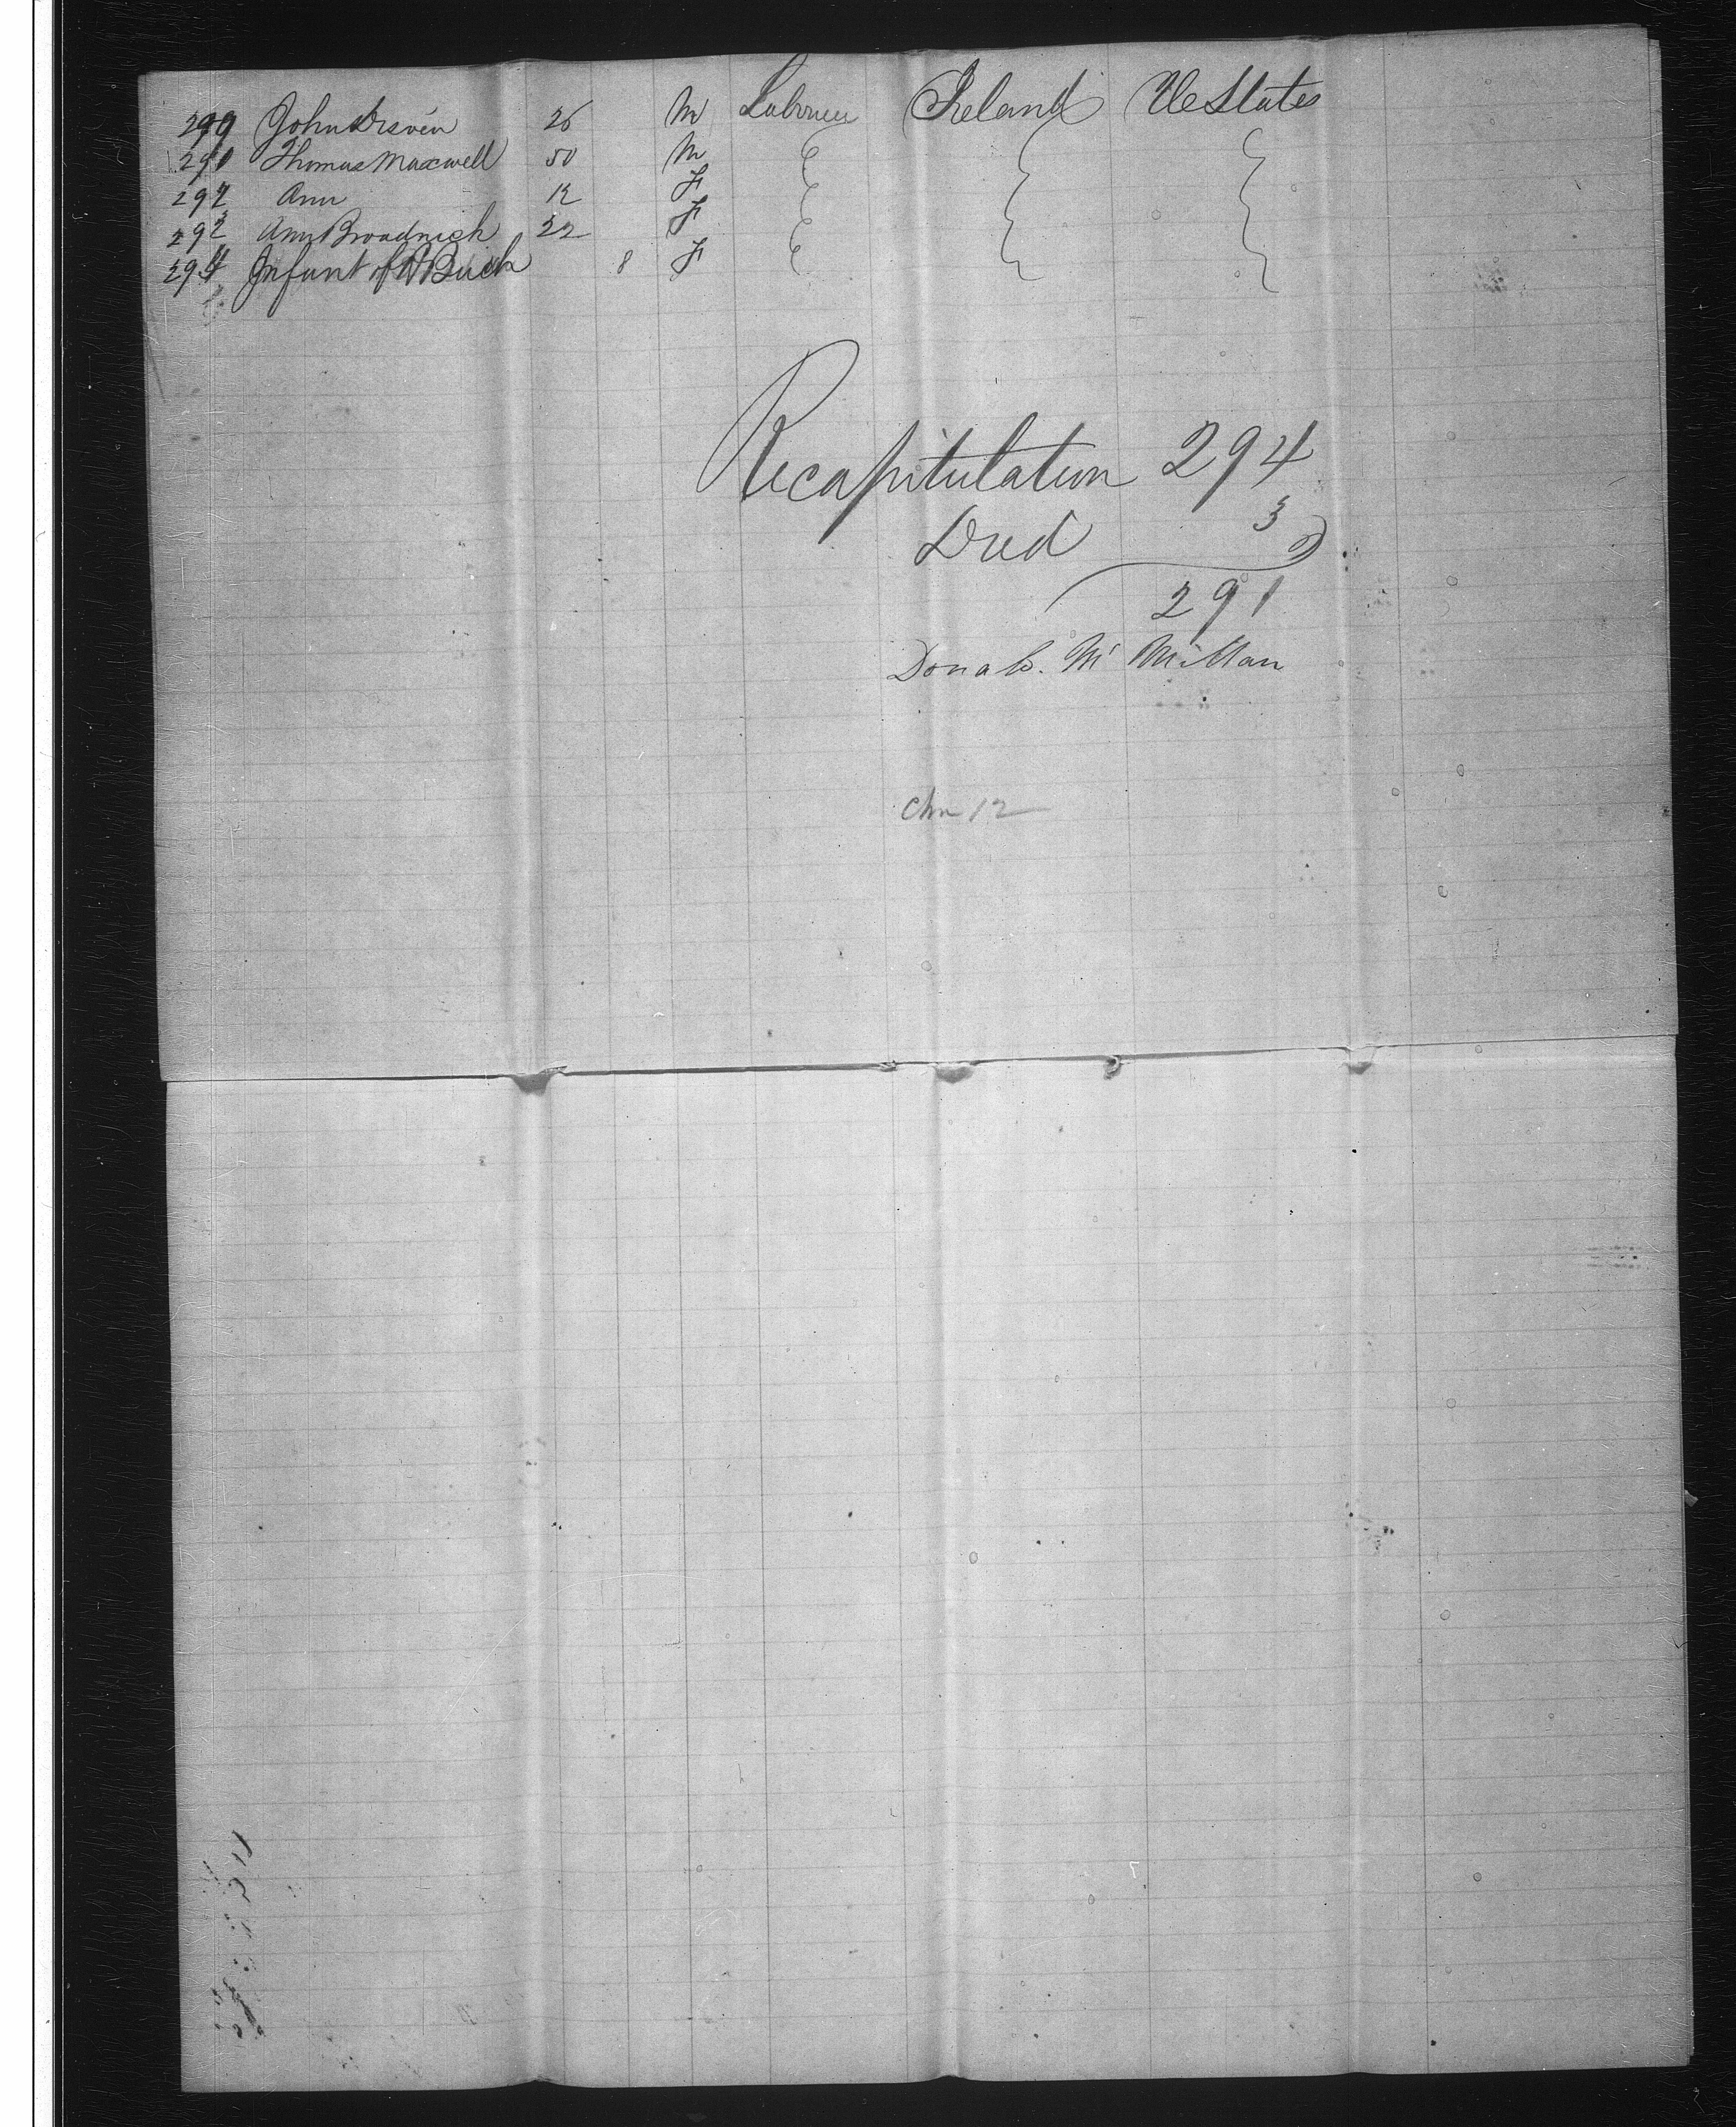 290 John 26 M Labourer Ireland U States
291 Thomas Maxwell 50 M
292 Ann 12 F
293 Ann Broadrick 22 F
294 Infant of A Buch 8 F
Recapitulation 294
Died 3
291
Donald McMillan
Chn 12